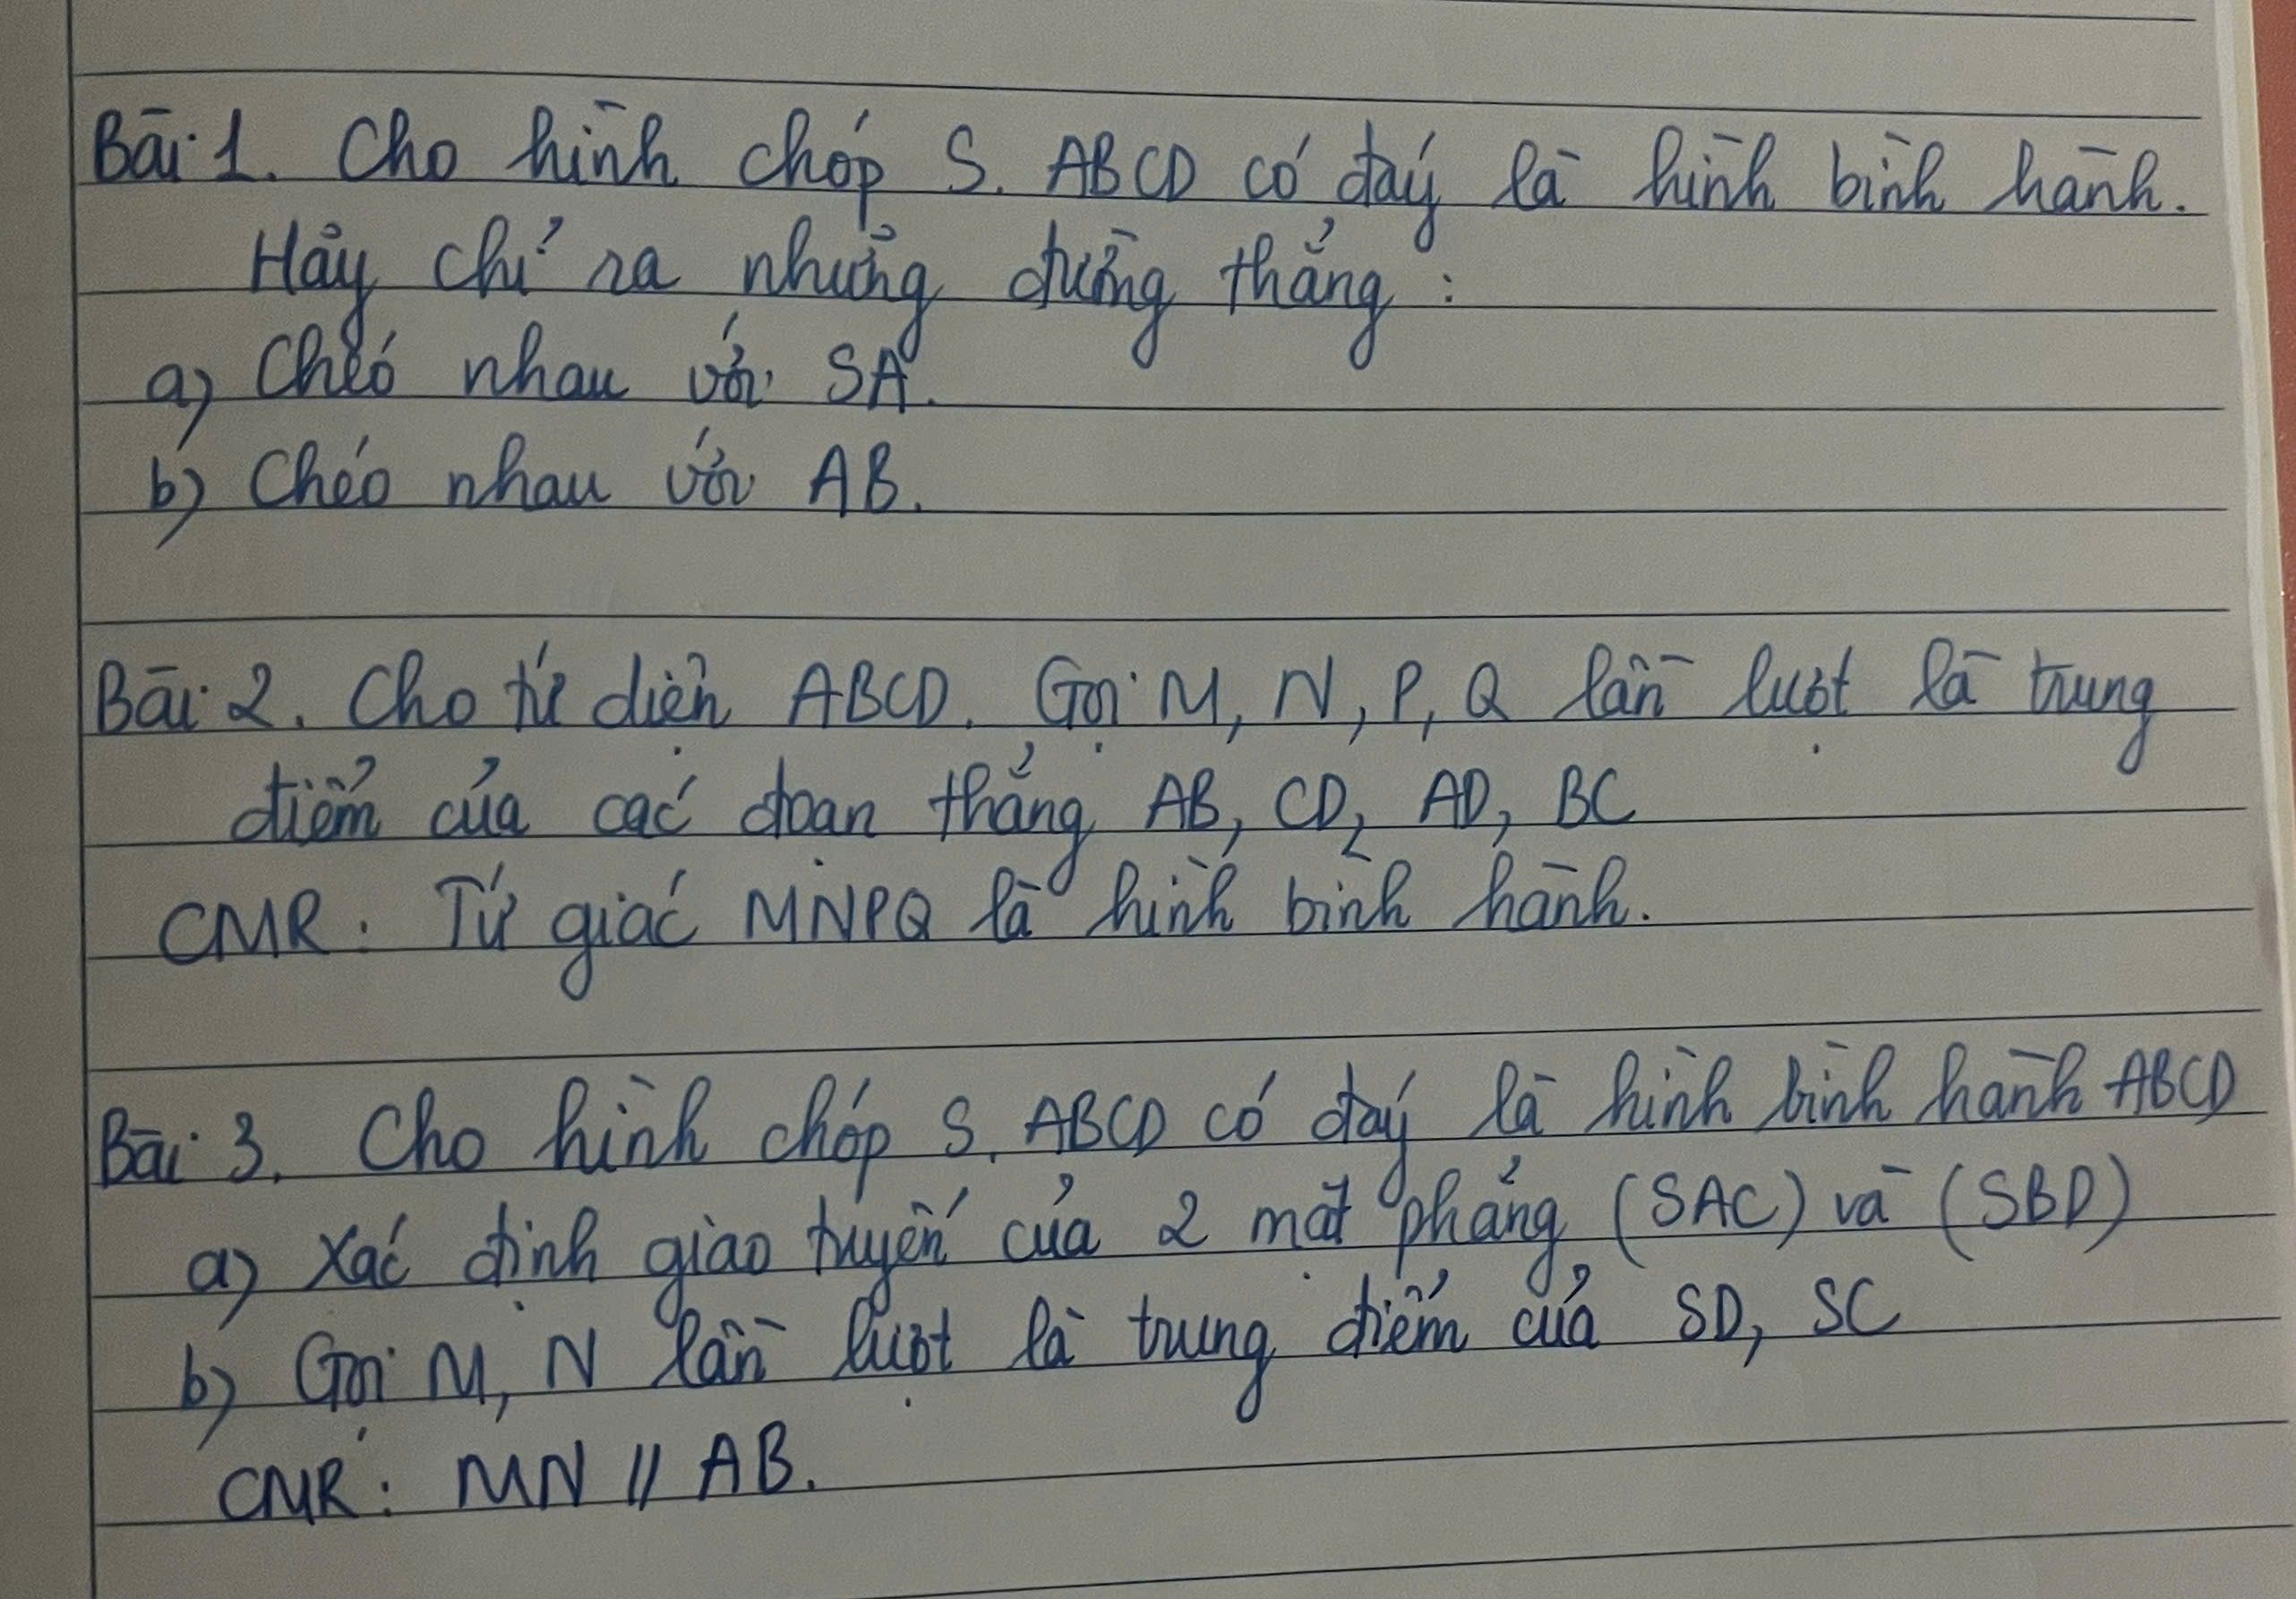 Bài 1. Cho hình chóp S. ABCD có đáy là hình bình hành.
Hãy chỉ ra những đường thẳng :
a) Chéo nhau với SA.
b) Chéo nhau với AB.
Bài 2. Cho tứ diện ABCD. Gọi M, N, P, Q lần lượt là trung
điểm của các đoạn thẳng AB, CD, AD, BC
CMR : Tứ giác MNPQ là hình bình hành.
Bài 3. Cho hình chóp S. ABCD có đáy là hình bình hành ABCD
a) Xác định giao tuyến của 2 mặt phẳng (SAC) và (SBD)
b) Gọi M, N lần lượt là trung điểm của SD, SC
CMR : MN // AB.